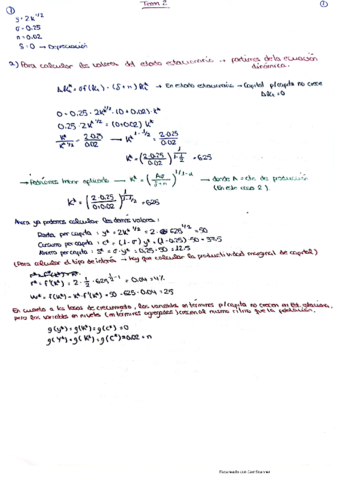 Tema 2
y = 2k^1/2
σ = 0.25
n = 0.02
δ = 0 → Depreciación
a) Para calcular los valores del estado estacionario → partimos de la ecuación dinámica.
Δkt = σf(kt) - (δ+n)kt → En estado estacionario → Capital p/cápita no crece
Δkt = 0
0 = 0.25 · 2k^1/2 - (0+0.02) · k*
0.25 · 2k^1/2 = (0+0.02) k*
k*/k*^1/2 = 2·0.25/0.02 → k*^1-1/2 = 2·0.25/0.02
k* = (2·0.25/0.02)^1/1-1/2 = 625
→ Podríamos haber aplicado → k* = (Aσ/δ+n)^1/1-α → donde A = cte de producción
(En este caso 2).
k* = (2·0.25/0+0.02)^1/1-1/2 = 625
Ahora ya podemos calcular los demás valores:
Renta per cápita: y* = 2k^1/2 = 2 · 625^1/2 = 50
Consumo per cápita: c* = (1-σ) y* = (1-0.25) · 50 = 37.5
Ahorro per cápita: s* = σ · y* = 0.25 · 50 = 12.5
(Para calcular el tipo de interés → hay que calcular la productividad marginal del capital)
r* = f'(k*) = 2 · 1/2 · 625^1/2-1 = 0.04 = 4%
w* = f(k*) - k* · f'(k*) = 50 - 625 · 0.04 = 25
En cuanto a las tasas de crecimiento, las variables en términos p/cápita no crecen en
pero las variables en niveles (en términos agregados) crecen al mismo ritmo que la población.
g(y*) = g(k*) = g(c*) = 0
g(Y*) = g(K*) = g(C*) = 0.02 = n
Escaneado con CamScanner